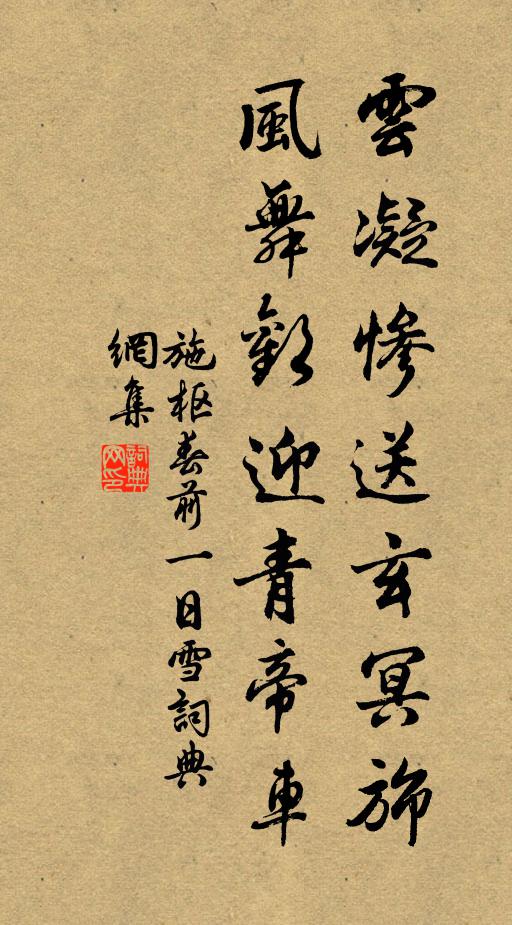 雲凝慘送玄冥旆
風舞歡迎青帝車
施枢春前一日雪詞典
網集
詞典
网印